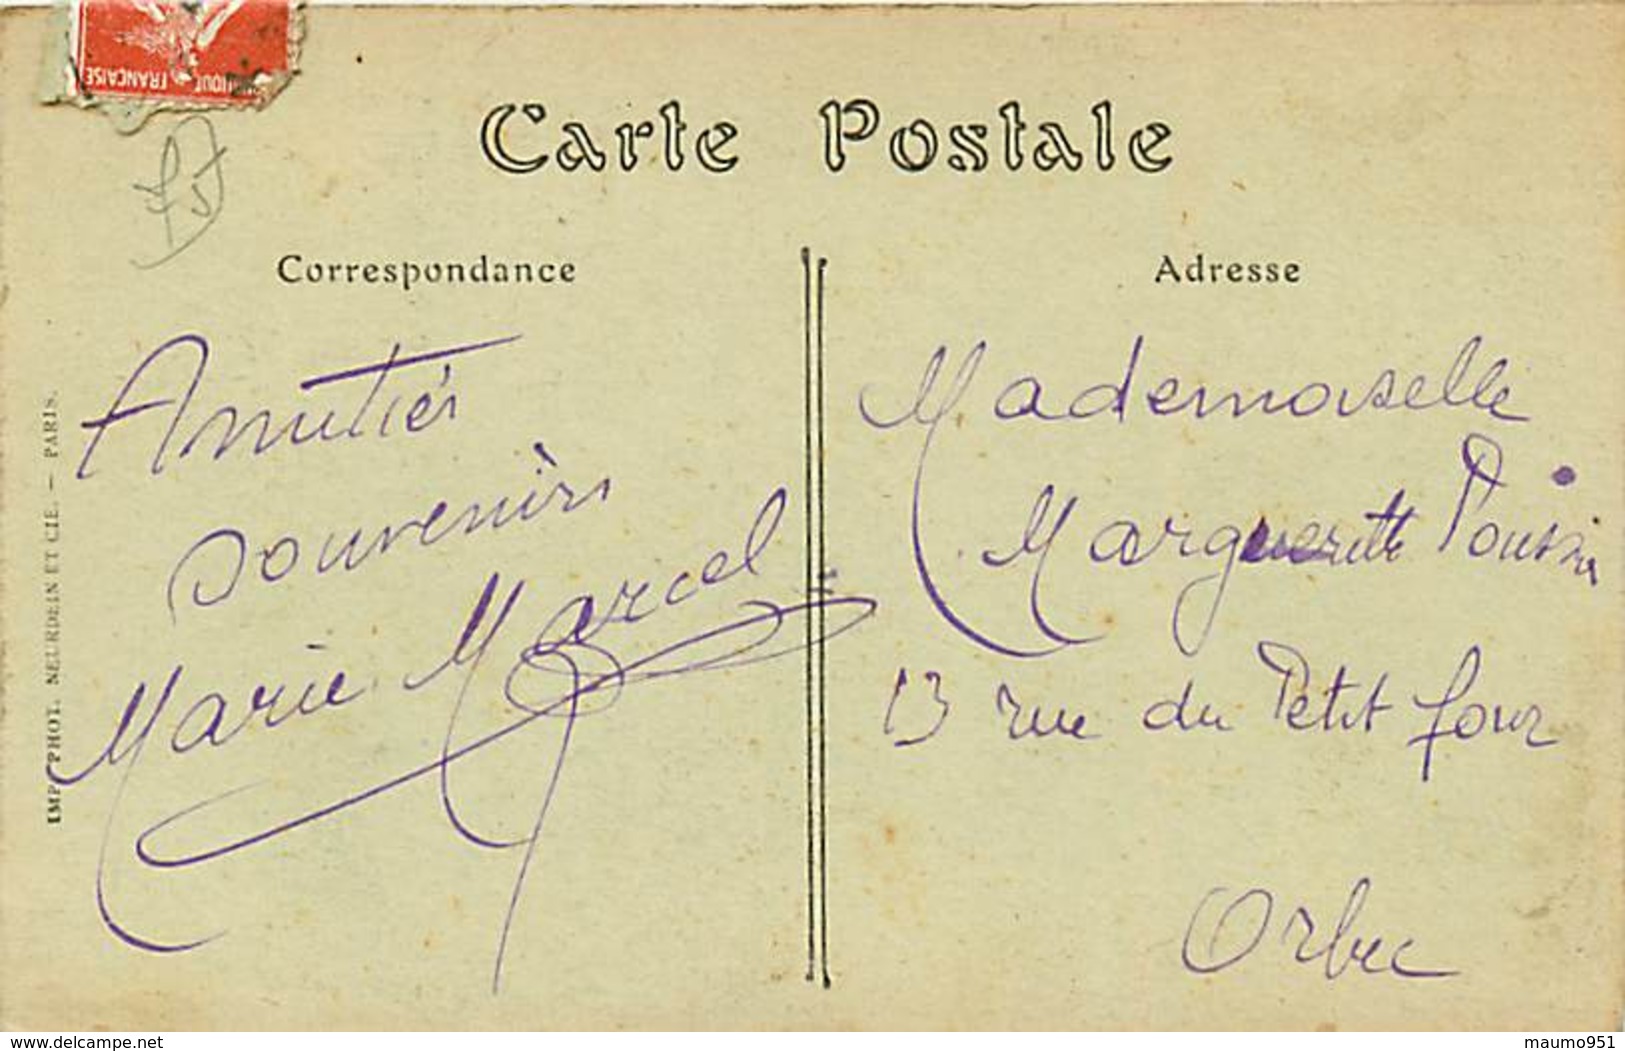 IQUE FRANÇAISE
Carte Postale
Correspondance
Adresse
Amitiés
souvenirs
Marie Marcel
Mademoiselle
Marguerite Poussin
13 rue du Petit four
Orbec
IMP. PHOT. NEURDEIN ET CIE. — PARIS.
www.delcampe.net
maumo951